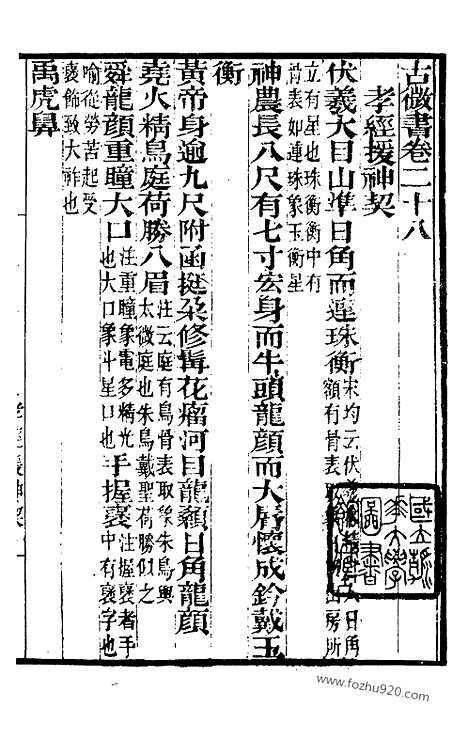 古微書卷二十八
孝經援神契
伏羲大目山準日角而連珠衡宋均云伏額有骨表取日角房所
立有星也珠衡衡中有
骨表如連珠象玉衡星
神農長八尺有七寸宏身而牛頭龍顏而大脣懷成鈐戴玉
衡
黃帝身逾九尺附函挺朵修髯花瘤河目龍顙日角龍顏
堯火精鳥庭荷勝八眉注云庭有鳥骨表取象朱鳥與太微庭也朱鳥戴聖荷勝似之
舜龍顏重瞳大口注重瞳象電多精光也大口象斗星口也手握褒注握褒者手中有褒字也
喻從勞苦起受
褒飾致大祚也
禹虎鼻
國立
大學
圖書
www.fozhu920.com